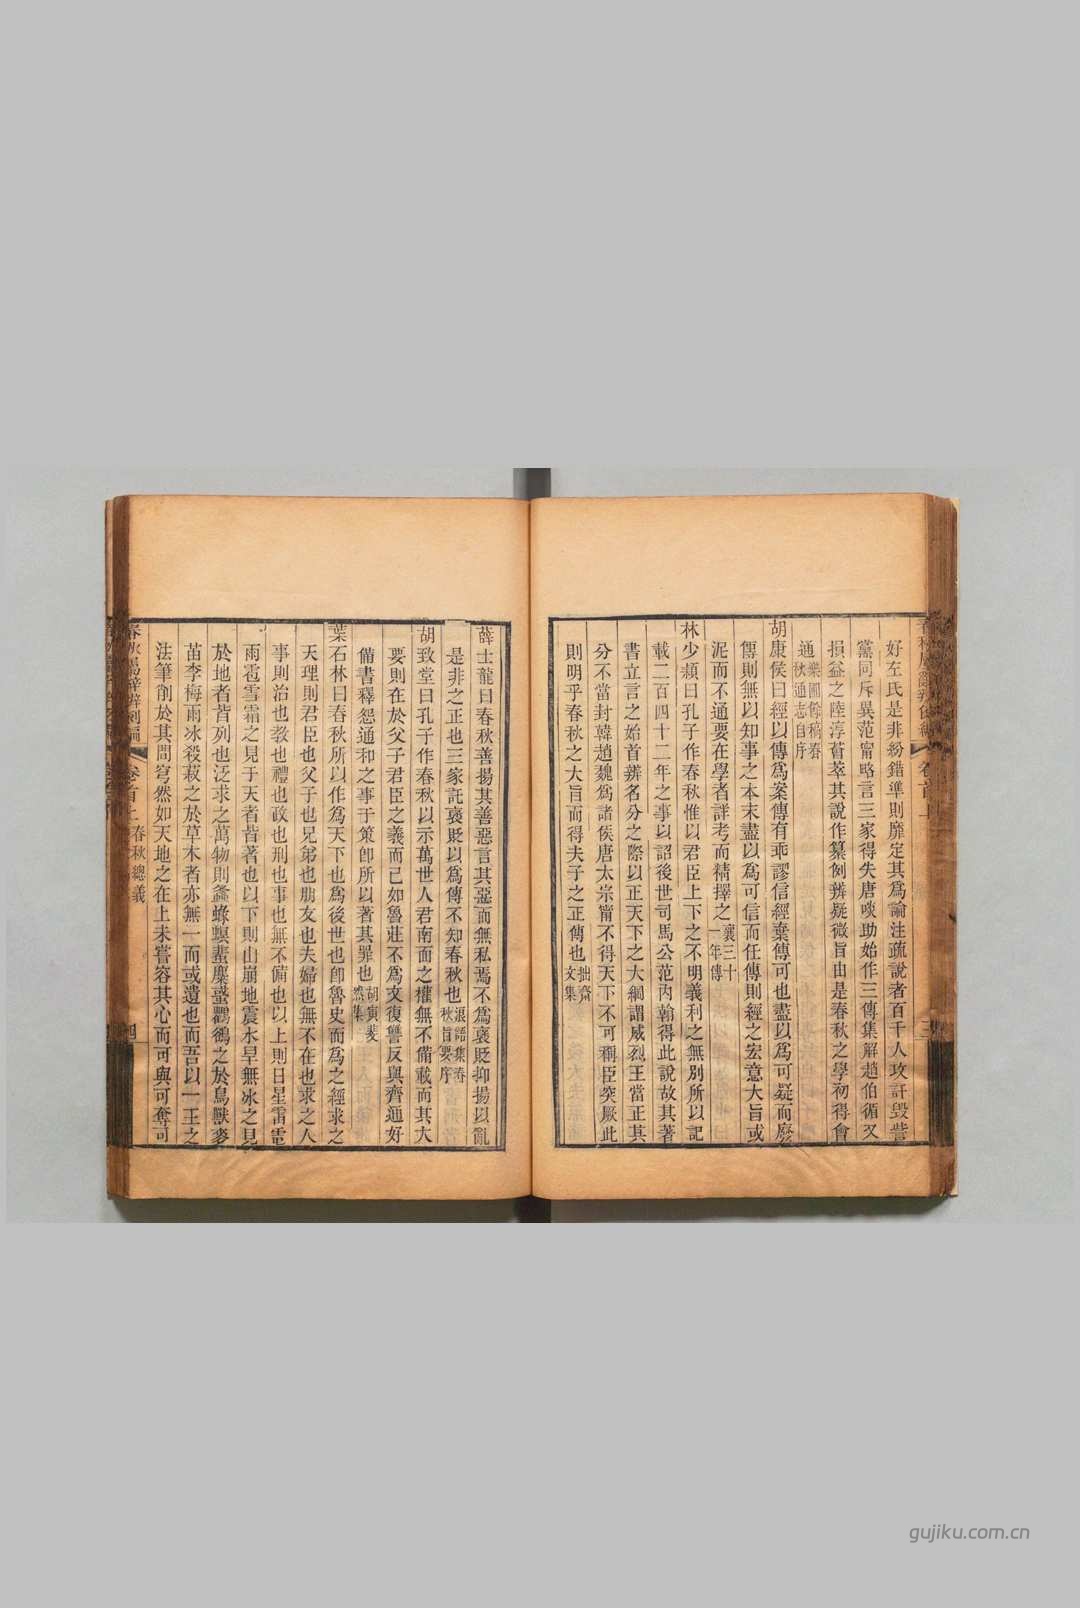 好左氏是非紛錯準則靡定其爲論注疏說者百千人攻訐毀訾
黨同斥異范甯略言三家得失唐啖助始作三傳集解趙伯循又
損益之陸淳薈萃其說作纂例辨疑微旨由是春秋之學初得會
通樂圃餘稿春秋通志自序
胡康侯曰經以傳爲案傳有乖謬信經棄傳可也盡以爲可疑而廢
傳則無以知事之本末盡以爲可信而任傳則經之宏意大旨或
泥而不通要在學者詳考而精擇之襄三十一年傳
林少穎曰孔子作春秋惟以君臣上下之不明義利之無別所以記
載二百四十二年之事以詔後世司馬公范內翰得此說故其著
書立言之始首辨名分之際以正天下之大綱謂威烈王當正其
分不當封韓趙魏爲諸侯唐太宗甯不得天下不可稱臣突厥此
則明乎春秋之大旨而得夫子之正傳也拙齋文集
春秋屬辭辨例編
卷首上
三
薛士龍曰春秋善揚其善惡言其惡而無私焉不爲褒貶抑揚以亂
是非之正也三家託褒貶以爲傳不知春秋也浪語集春秋旨要序
胡致堂曰孔子作春秋以示萬世人君南面之權無不備載而其大
要則在於父子君臣之義而已如魯莊不爲文復讐反與齊通好
備書釋怨通和之事于策卽所以著其罪也胡寅斐然集
葉石林曰春秋所以作爲天下也爲後世也卽魯史而爲之經求之
天理則君臣也父子也兄弟也朋友也夫婦也無不在也求之人
事則治也敎也禮也政也刑也事也無不備也以上則日星雷電
雨雹雪霜之見于天者皆著也以下則山崩地震水旱無冰之見
於地者皆列也泛求之萬物則螽蜍螟蜚麋蜮鸜鵒之於鳥獸麥
苗李梅雨冰殺菽之於草木者亦無一而或遺也而吾以一王之
法筆削於其間穹然如天地之在上未嘗容其心而可與可奪可
春秋屬辭辨例編
卷首上 春秋總義
四
gujiku.com.cn